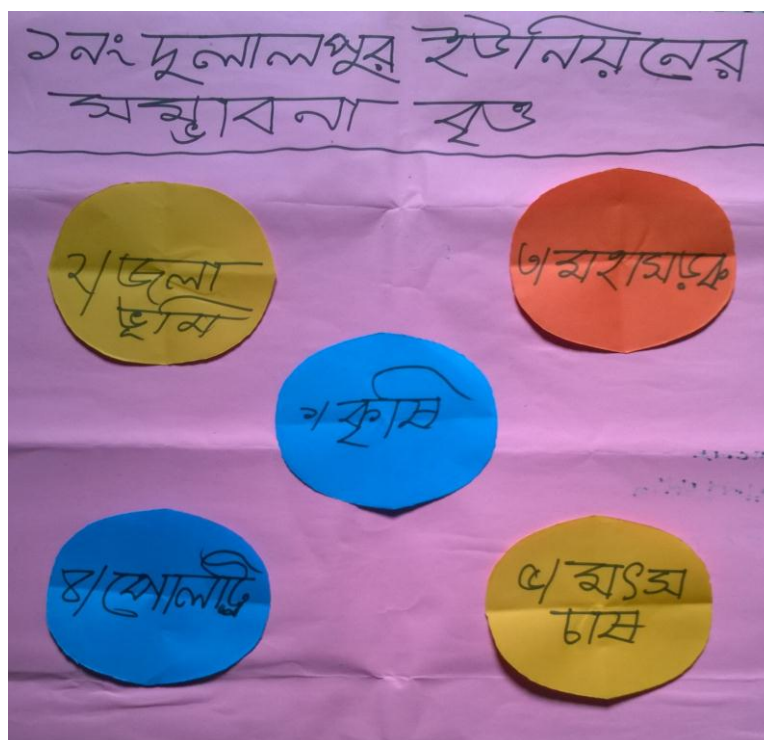 ১নং দুলালপুর ইউনিয়নের
সম্ভাবনা বৃত্ত
২/জলা
ভূমি
৩/মহাসড়ক
১/কৃষি
৪/পোলট্রি
৫/মৎস
চাষ